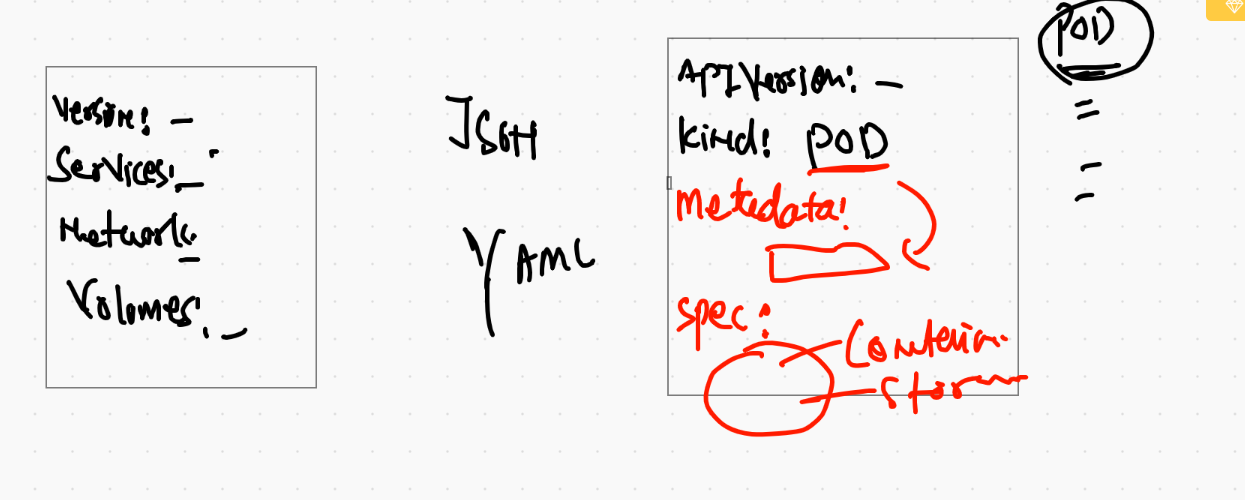 Version: -
Services: -
Network
Volumes: -
JSON
YAML
API Version: -
Kind: POD
Metadata:
Spec:
Contain
Stor
POD